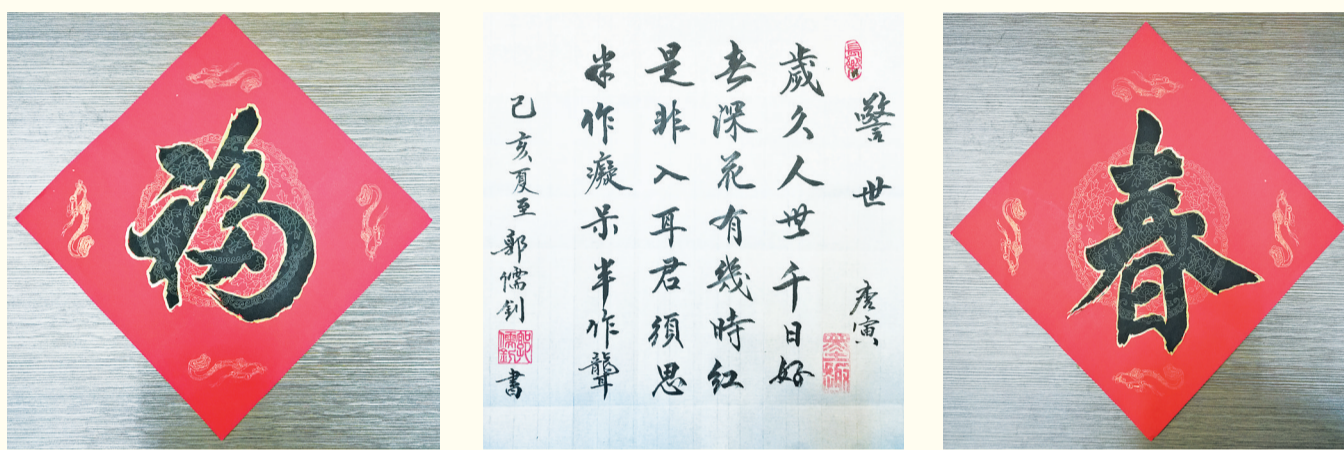 福
長樂
警世 唐寅
墨趣
歲久人世千日好
春深花有幾時紅
是非入耳君須思
半作癡呆半作聾
己亥夏至郭儒釗書
郭儒釗
春